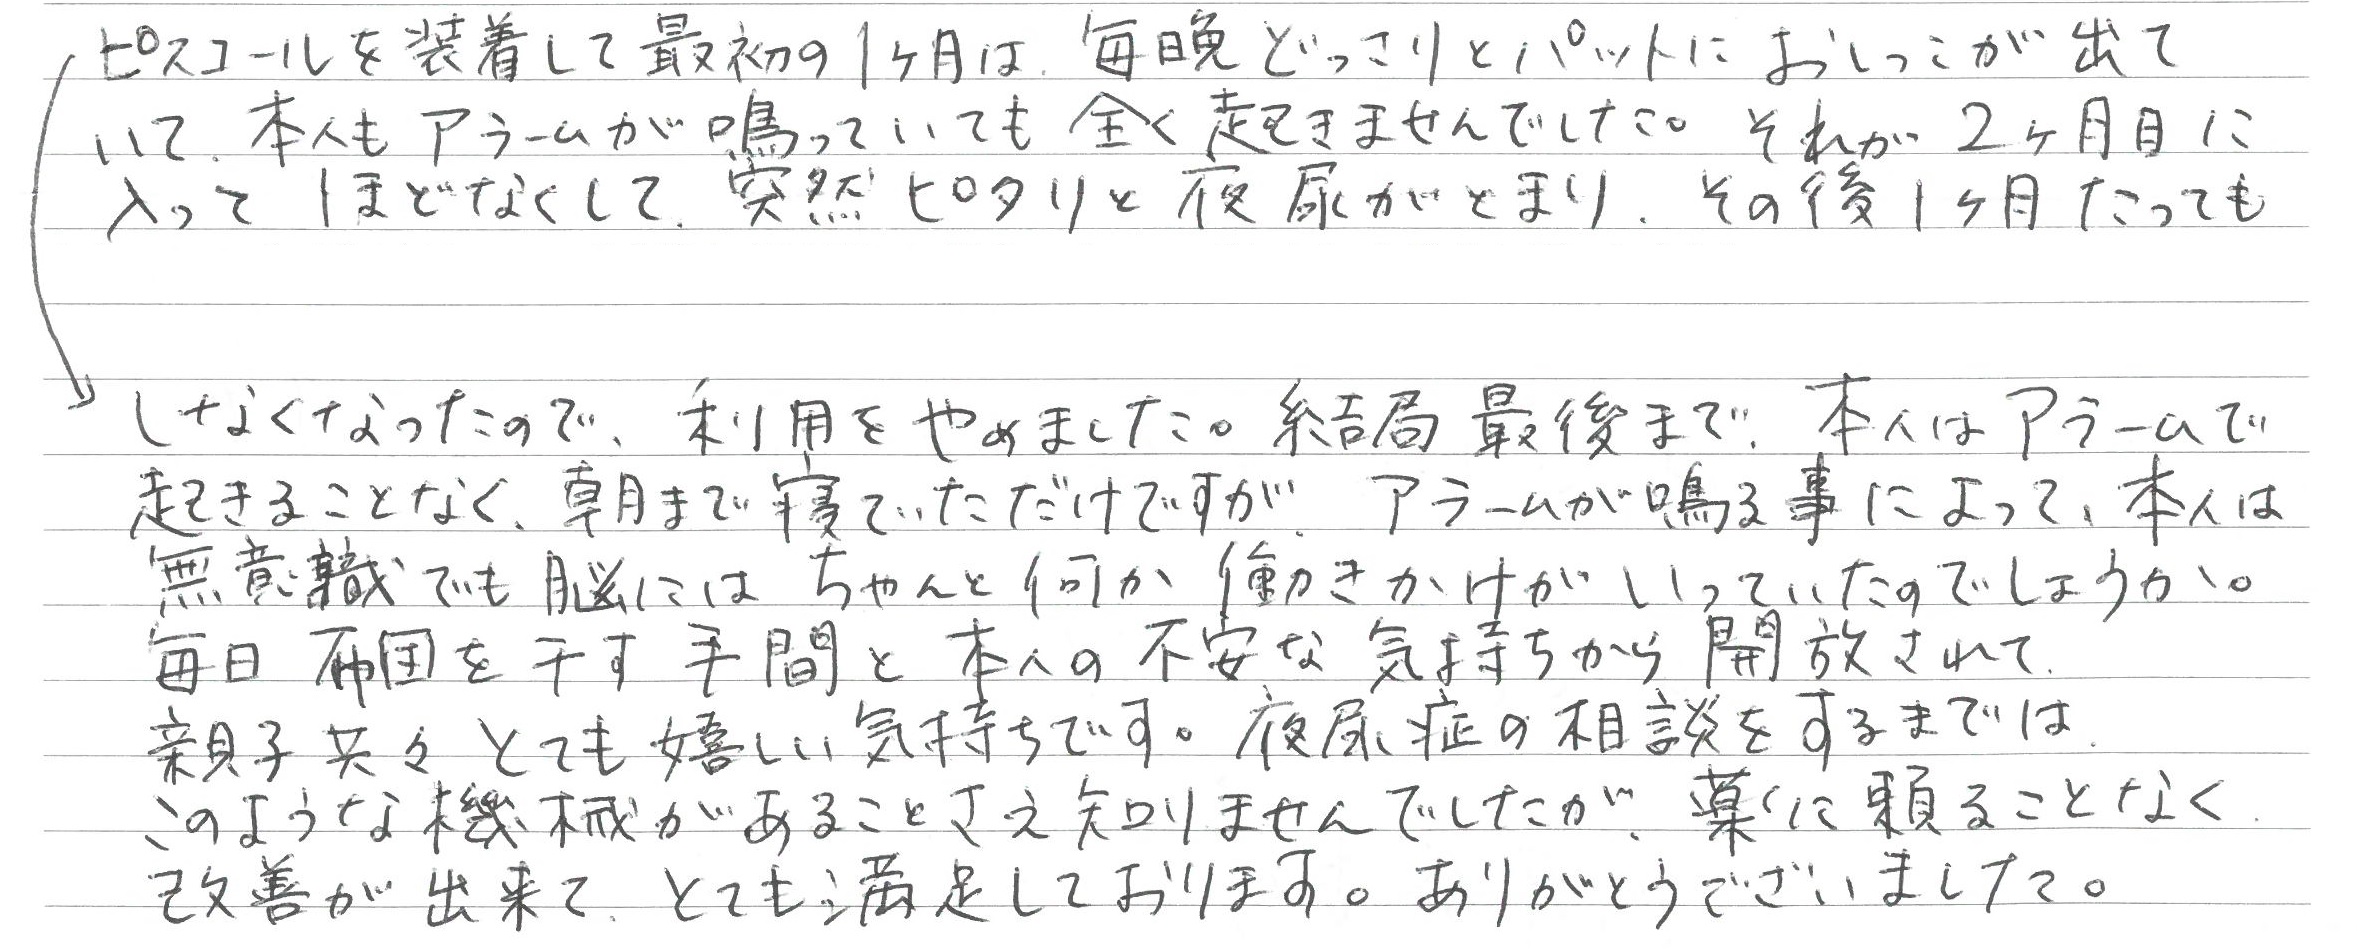 ピスコールを装着して最初の1ヶ月は、毎晩どっさりとパットにおしっこが出て
いて、本人もアラームが鳴っていても全く起きませんでした。それが2ヶ月目に
入ってほどなくして、突然ピタリと夜尿がとまり、その後1ヶ月たっても
しなくなったので、利用をやめました。結局最後まで、本人はアラームで
起きることなく、朝まで寝ていただけですが、アラームが鳴る事によって、本人は
無意識でも脳にはちゃんと何か働きかけがいっていたのでしょうか。
毎日布団を干す手間と本人の不安な気持ちから開放されて、
親子共々とても嬉しい気持ちです。夜尿症の相談をするまでは、
このような機械があることさえ知りませんでしたが、薬に頼ることなく、
改善が出来て、とても満足しております。ありがとうございました。